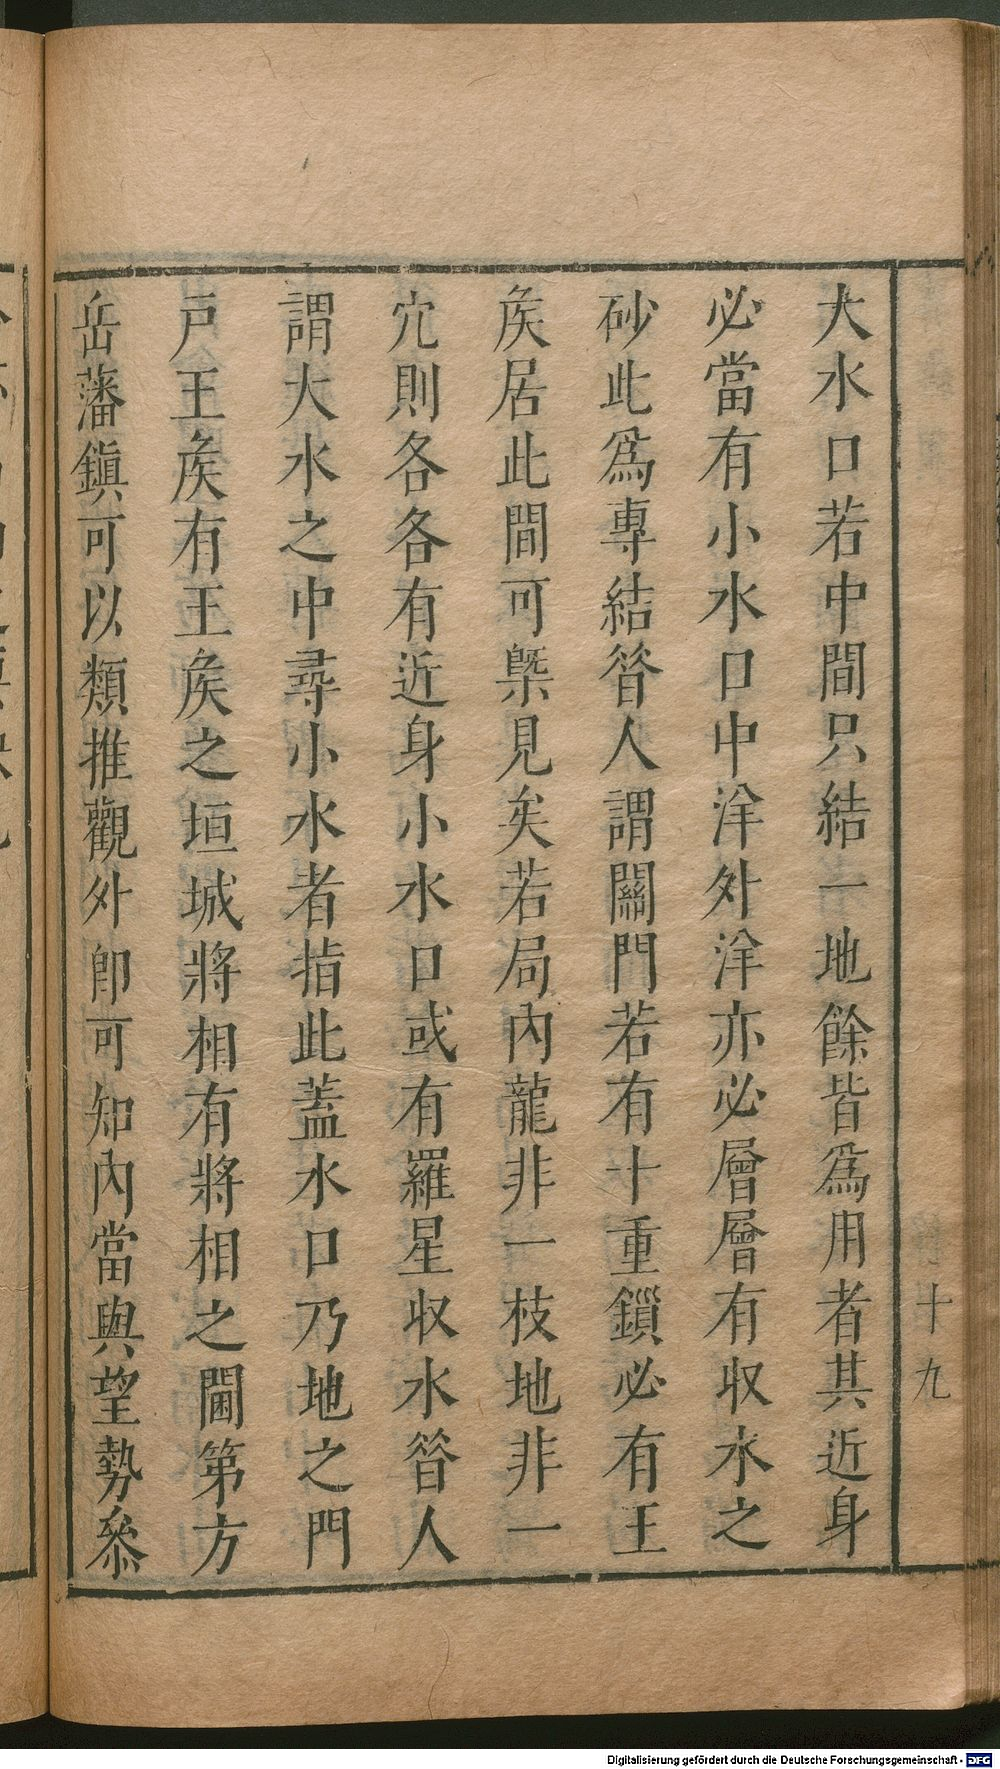 大水口若中間只結一地餘皆爲用者其近身
必當有小水口中洋外洋亦必層層有収水之
砂此爲專結㫺人謂關門若有十重鎖必有王
矦居此間可槩見矣若局內龍非一枝地非一
穴則各各有近身小水口或有羅星収水㫺人
謂大水之中尋小水者指此蓋水口乃地之門
戸王矦有王矦之垣城將相有將相之閫第方
岳藩鎭可以類推觀外卽可知內當與望勢叅
十九
Digitalisierung gefördert durch die Deutsche Forschungsgemeinschaft - DFG